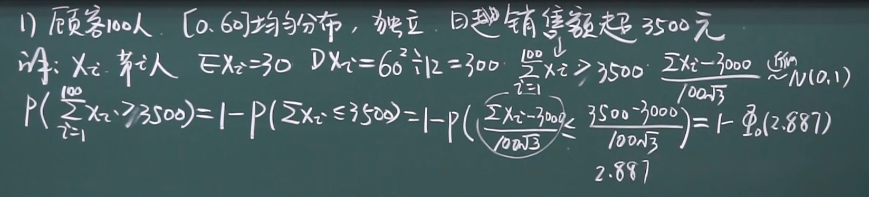 1) 顾客100人 [0.60]均匀分布，独立 日销售额超3500元
解: Xi 第i人 EXi=30 DXi=60²÷12=300 100∑i=1 Xi>3500 (∑Xi-3000)/(100√3) 近似~N(0,1)
P(100∑i=1 Xi>3500)=1-P(∑Xi≤3500)=1-P((∑Xi-3000)/(100√3)≤(3500-3000)/(100√3))=1-Φ₀(2.887)
2.887